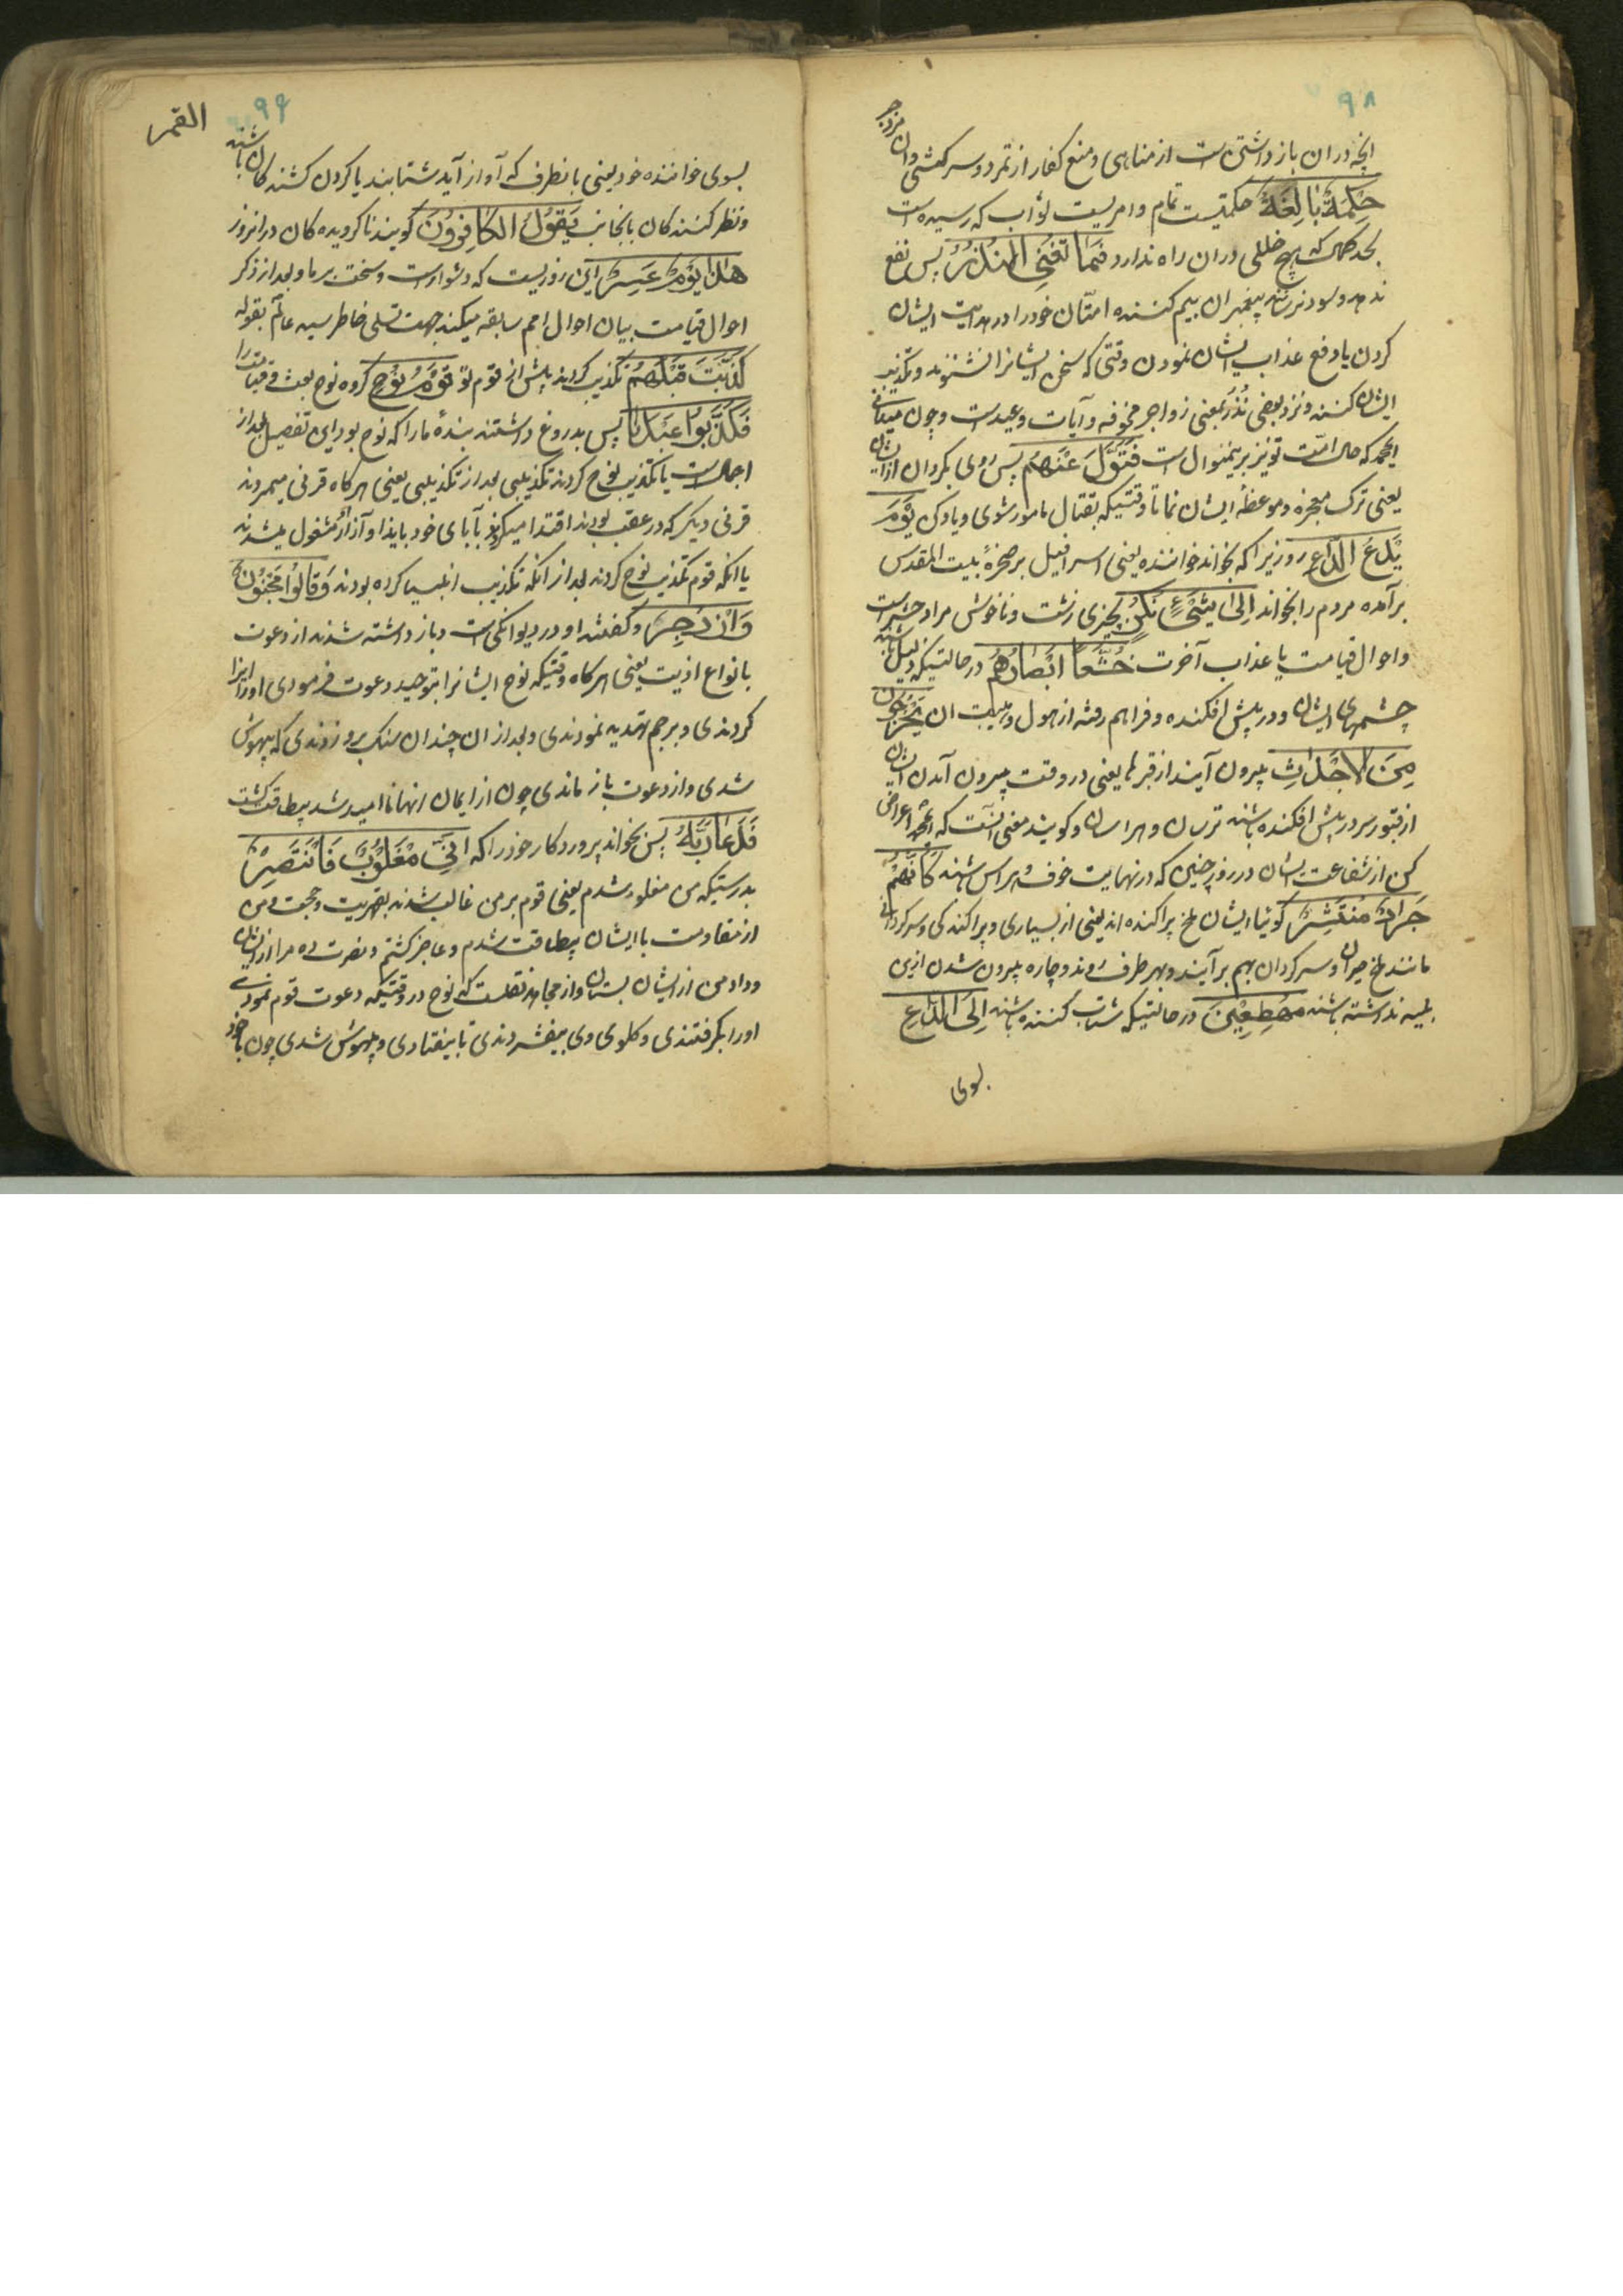 ۹۸
آنچه دران بازداشتن است از مناهی و منع کفار از تمرد و سرکشی وان مزدجر
حِكْمَةٌ بَالِغَةٌ حکمتیست تمام و امریست ثواب که رسیده است
بحد کمال که هیچ خللی دران راه ندارد فَمَا تُغْنِ النُّذُرُ پس نفع
ندهد و سود نرساند پیغمبران بیم کننده امتان خود را در هدایت ایشان
کردن یا دفع عذاب ایشان نمودن وقتی که سخن ایشانرا نشنوند و تکذیب
ایشان کنند و نزد بعضی نُذُر بمعنی زواجر مخوفه و آیات وعیدست و چون میدانی
ایمحمد که حال امّت تو نیز برینمنوال است فَتَوَلَّ عَنْهُمْ پس روی بگردان از ایشان
یعنی ترک معجزه و موعظهٔ ایشان نما تا وقتیکه بقتال مامور شوی و یاد کن يَوْمَ
يَدْعُ الدَّاعِ روزیرا که بخواند خواننده یعنی اسرافیل بر صخرهٔ بیت المقدس
برآمده مردم را بخواند اِلىٰ شَيْءٍ نُكُرٍ بچیزی زشت و ناخوش مراد حشرست
و احوال قیامت یا عذاب آخرت خُشَّعًا اَبْصَارُهُمْ در حالتیکه ذلیل باشد
چشمهای ایشان و در پیش افکنده و فراهم رفته از هول و هیبت ان يَخْرُجُونَ
مِنَ الْاَجْدَاثِ بیرون آیند از قبرها یعنی در وقت بیرون آمدن ایشان
از قبور سر در پیش افکنده باشند ترسان و هراسان و گویند معنی آنست که ایمحمد اعراض
کن از شفاعت ایشان در روز چنین که در نهایت خوف و هراس باشند كَاَنَّهُمْ
جَرَادٌ مُنْتَشِرٌ گوئیا ایشان ملخ پراکنده اند یعنی از بسیاری و پراکندگی و سرگردانی
مانند ملخ حیران و سرگردان بهم برآیند و بهر طرف روند و چاره بیرون شدن ازین
بلیه نداشته باشند مُهْطِعِينَ در حالتیکه شتاب کننده باشند اِلَى الدَّاعِ
بسوی
۹۹
القمر
بسوی خواننده خود یعنی بانطرف که آواز آید شتابند یا گردن کشنده گان باشند
و نظر کننده گان بانجانب يَقُولُ الْكَافِرُونَ گویند ناگرویده گان در انروز
هٰذَا يَوْمٌ عَسِرٌ این روزیست که دشوارست و سخت بر ما و بعد از ذکر
احوال قیامت بیان احوال امم سابقه میکند جهت تسلی خاطر سید عالم بقوله
كَذَّبَتْ قَبْلَهُمْ تکذیب کردند پیش از قوم تو قَوْمُ نُوحٍ گروه نوح بعث و قیامت را
فَكَذَّبُوا عَبْدَنَا پس بدروغ داشتند بندهٔ ما را که نوح بود این تفصیل بعد از
اجمال است یا تکذیب نوح کردند تکذیبی بعد از تکذیبی یعنی هرگاه قرنی میمردند
قرنی دیگر که در عقب بودند اقتدا میکردند بآبای خود بایذا و آزار مشغول میشدند
یا انکه قوم تکذیب نوح کردند بعد از انکه تکذیب انبیا کرده بودند وَقَالُوا مَجْنُونٌ
وَازْدُجِرَ و گفتند او در دیوانگی است و باز داشته شد از دعوت
بانواع اذیت یعنی هرگاه وقتیکه نوح ایشانرا بتوحید دعوت فرمودی او را ایذا
کردندی و برجم تهدید نمودندی و بعد از ان چندان سنک برو زدندی که بیهوش
شدی و از دعوت باز ماندی چون از ایمان انها ناامید شد بیطاقت گشت
فَدَعَا رَبَّهُ پس بخواند پروردگار خود را که اَنِّي مَغْلُوبٌ فَانْتَصِرْ
بدرستیکه من مغلوب شدم یعنی قوم بر من غالب شدند بقهریت و حجت و من
از مقاومت با ایشان بیطاقت شدم و عاجز گشتم و نصرت ده مرا از ایشان
و داد من از ایشان بستان و از مجاهد نقلست که نوح در وقتیکه دعوت قوم نمودی
او را بگرفتندی و گلوی وی بیفشردندی تا بیفتادی و بیهوش شدی چون با خود